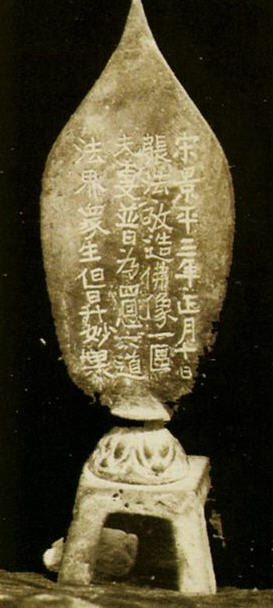 宋景平三年正月十日
張法敬造佛像一區
夫妻普为四恩六道
法界衆生但昇妙果